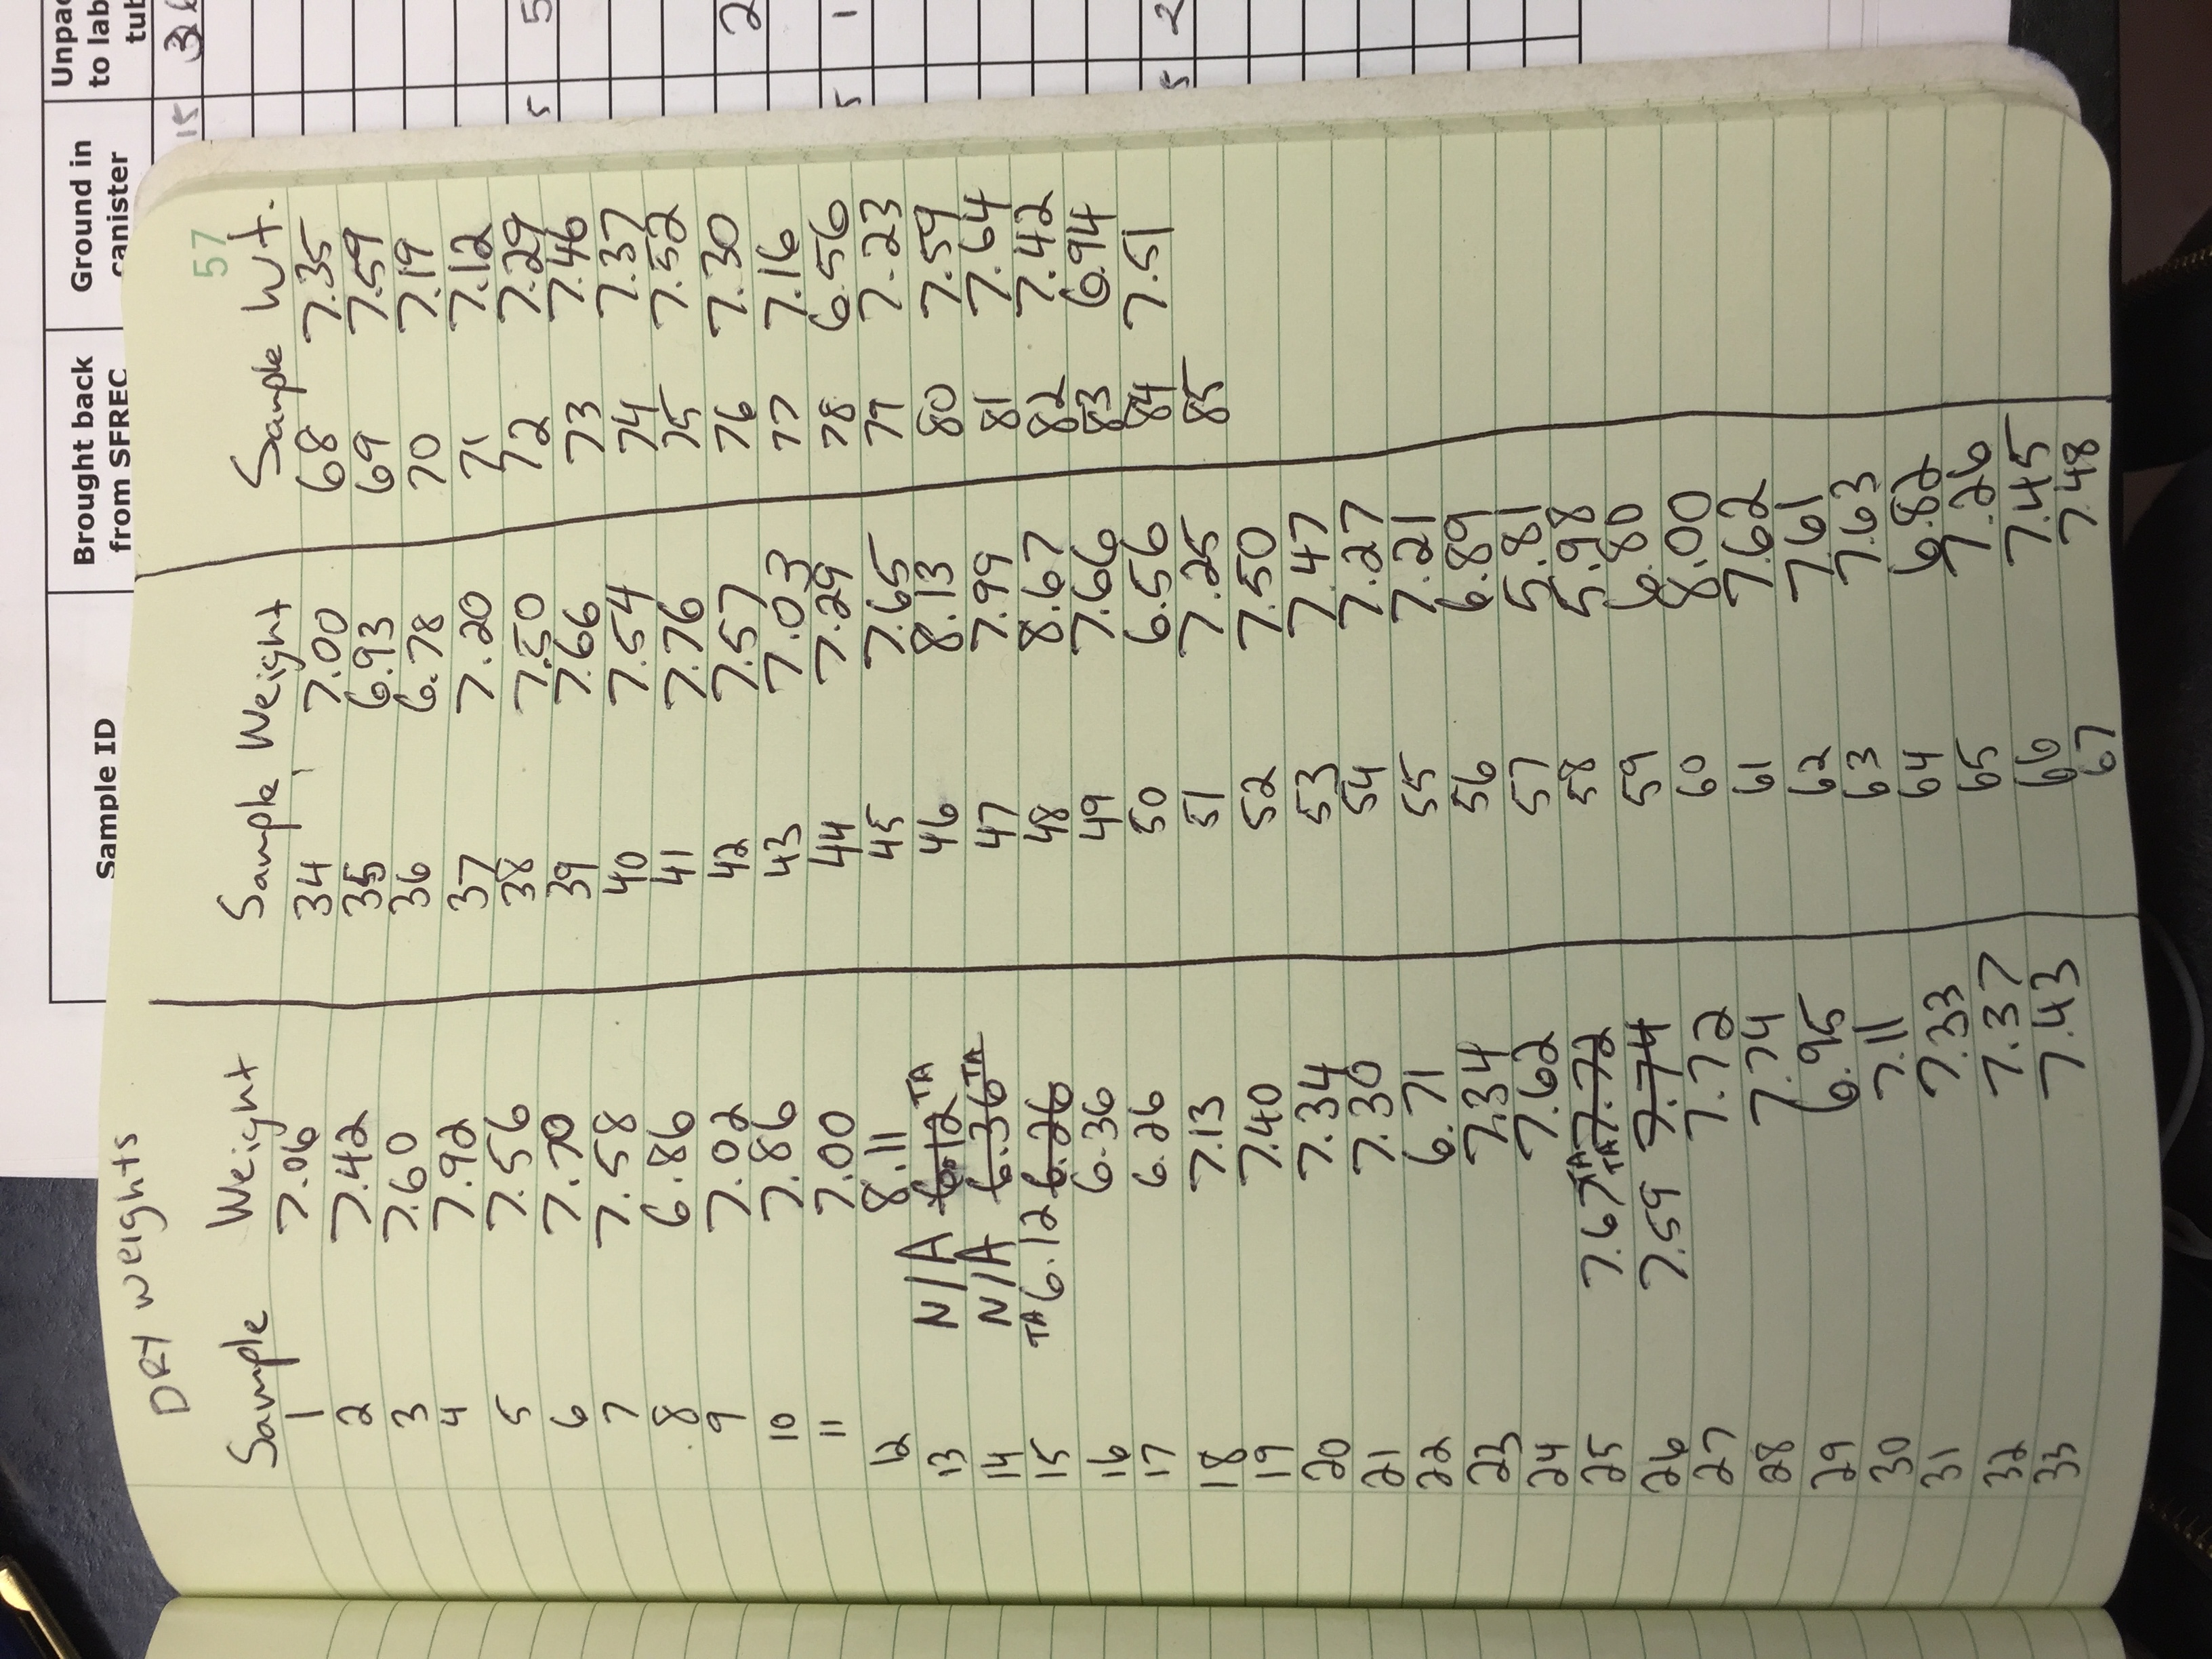 Sample ID
Brought back
from SFREC
Ground in
canister
Unpac
to lab
tub
15
5
5
2
5
1
5
2
57
DRY weights
Sample Weight
1 7.06
2 7.42
3 7.60
4 7.92
5 7.56
6 7.70
7 7.58
8 6.86
9 7.02
10 7.86
11 7.00
12 8.11
13 N/A 6.12 TA
14 N/A 6.36 TA
15 TA 6.12 6.26
16 6.36
17 6.26
18 7.13
19 7.40
20 7.34
21 7.30
22 6.71
23 7.34
24 7.62
25 7.67 TA 7.72
26 7.59 TA 7.74
27 7.72
28 7.74
29 6.95
30 7.11
31 7.33
32 7.37
33 7.43
Sample Weight
34 7.00
35 6.93
36 6.78
37 7.20
38 7.50
39 7.66
40 7.54
41 7.76
42 7.57
43 7.03
44 7.29
45 7.65
46 8.13
47 7.99
48 8.67
49 7.66
50 6.56
51 7.25
52 7.50
53 7.47
54 7.27
55 7.21
56 6.89
57 5.81
58 5.98
59 6.80
60 8.00
61 7.62
62 7.61
63 7.63
64 6.82
65 7.26
66 7.45
67 7.48
Sample Wt.
68 7.35
69 7.59
70 7.19
71 7.12
72 7.29
73 7.46
74 7.37
75 7.52
76 7.30
77 7.16
78 6.56
79 7.23
80 7.59
81 7.64
82 7.42
83 6.94
84 7.51
85